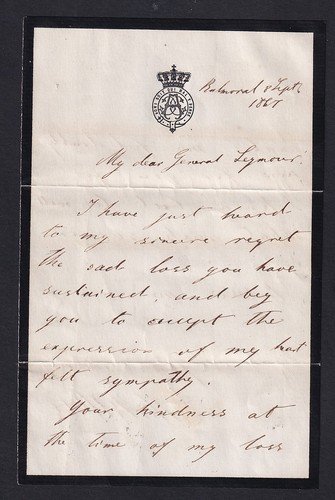 HONI SOIT QUI MAL Y PENSE
Balmoral 8 Sept
1867
My dear General Seymour.
I have just heard
to my sincere regret
the sad loss you have
sustained, and beg
you to accept the
expression of my heart
felt sympathy.
Your kindness at
the time of my loss